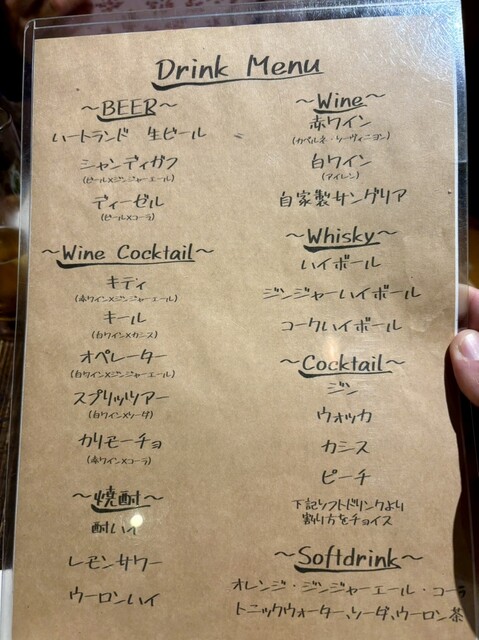 Drink Menu
~BEER~
ハートランド 生ビール
シャンディガフ
(ビール×ジンジャーエール)
ディーゼル
(ビール×コーラ)
~Wine Cocktail~
キティ
(赤ワイン×ジンジャーエール)
キール
(白ワイン×カシス)
オペレーター
(白ワイン×ジンジャーエール)
スプリッツァー
(白ワイン×ソーダ)
カリモーチョ
(赤ワイン×コーラ)
~焼酎~
酎ハイ
レモンサワー
ウーロンハイ
~Wine~
赤ワイン
(カベルネ・ソーヴィニヨン)
白ワイン
(アイレン)
自家製サングリア
~Whisky~
ハイボール
ジンジャーハイボール
コークハイボール
~Cocktail~
ジン
ウォッカ
カシス
ピーチ
下記ソフトドリンクより
割り方をチョイス
~Softdrink~
オレンジ・ジンジャーエール・コーラ
トニックウォーター、ソーダ、ウーロン茶